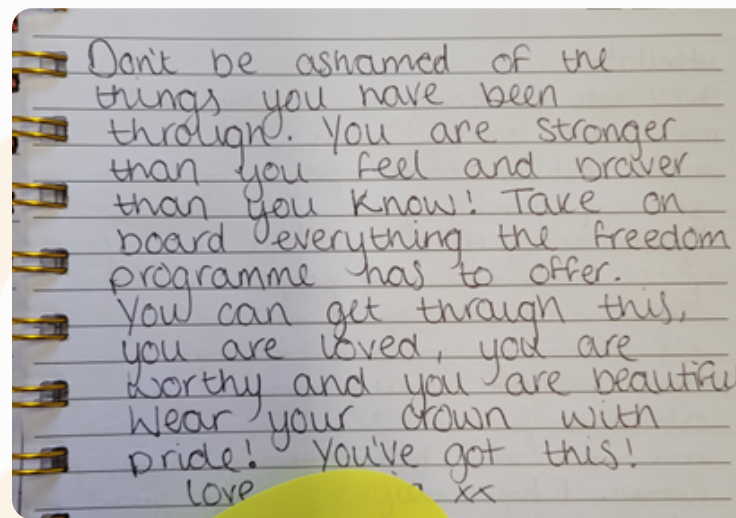 Don't be ashamed of the
things you have been
through. You are stronger
than you feel and braver
than you know! Take on
board everything the freedom
programme has to offer.
You can get through this,
you are loved, you are
worthy and you are beautiful
Wear your crown with
pride! You've got this!
love xx